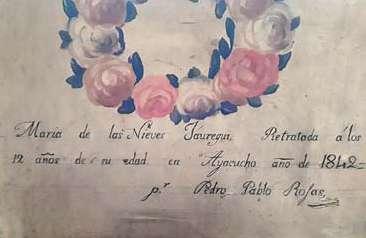 Maria de las Nieves Jauregui, Retratada á los
12 años de su edad en Ayacucho año de 1842=
p.r Pedro Pablo Rojas